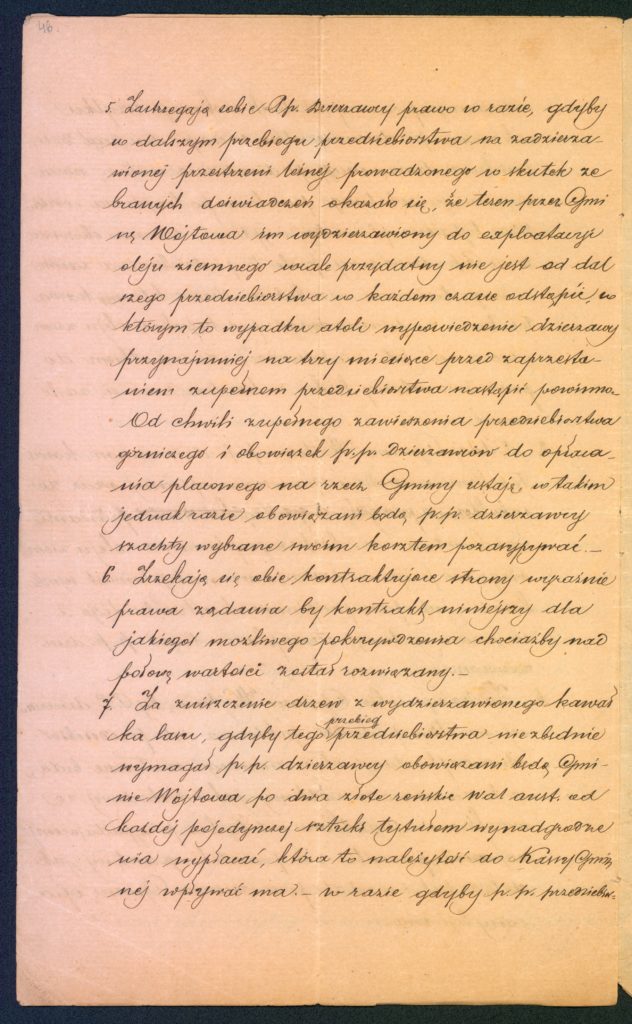 46.
5. Zastrzegają sobie Pp. Dzierzawcy prawo w razie, gdyby
w dalszym przebiegu przedsiebiorstwa na zadzierza-
wionej przestrzeni leśnej prowadzonego w skutek ze
branych doświadczeń okazało się, że teren przez Gmi
nę Wójtowa im wydzierzawiony do exploatacyi
oleju ziemnego wcale przydatny nie jest od dal
szego przedsiebiorstwa w każdem czasie odstąpić, w
którym to wypadku atoli wypowiedzenie dzierzawy
przynajmniej na trzy miesiące przed zaprzesta-
niem zupełnem przedsiebiorstwa nastąpić powinno.
Od chwili zupełnego zawieszenia przedsiebiorstwa
górniczego i obowiązek p.p. dzierzawców do opłaca
nia placowego na rzecz Gminy ustaję, w takim
jednak razie obowiązani będą p.p. dzierzawcy
szachty wybrane swoim kosztem pozasypywać. –
6. Zrzekają się obie kontraktujące strony wyraźnie
prawa żądania by kontrakt niniejszy dla
jakiegoś możliwego pokrzywdzenia chociażby nad
połową wartości został rozwiązany. –
7. Za zniszczenie drzew z wydzierzawionego kawał
ka lasu, gdyby tego przebieg przedsiebiorstwa niezbednie
wymagał p.p. dzierzawcy obowiązani będą Gmi-
nie Wójtowa po dwa złote reńskie wal. aust. od
każdej pojedynczej sztuki tytułem wynadgrodze
nia wypłacać, która to należytość do Kassy Gmin
nej wpływać ma. – w razie gdyby p.p. przedsiebior-